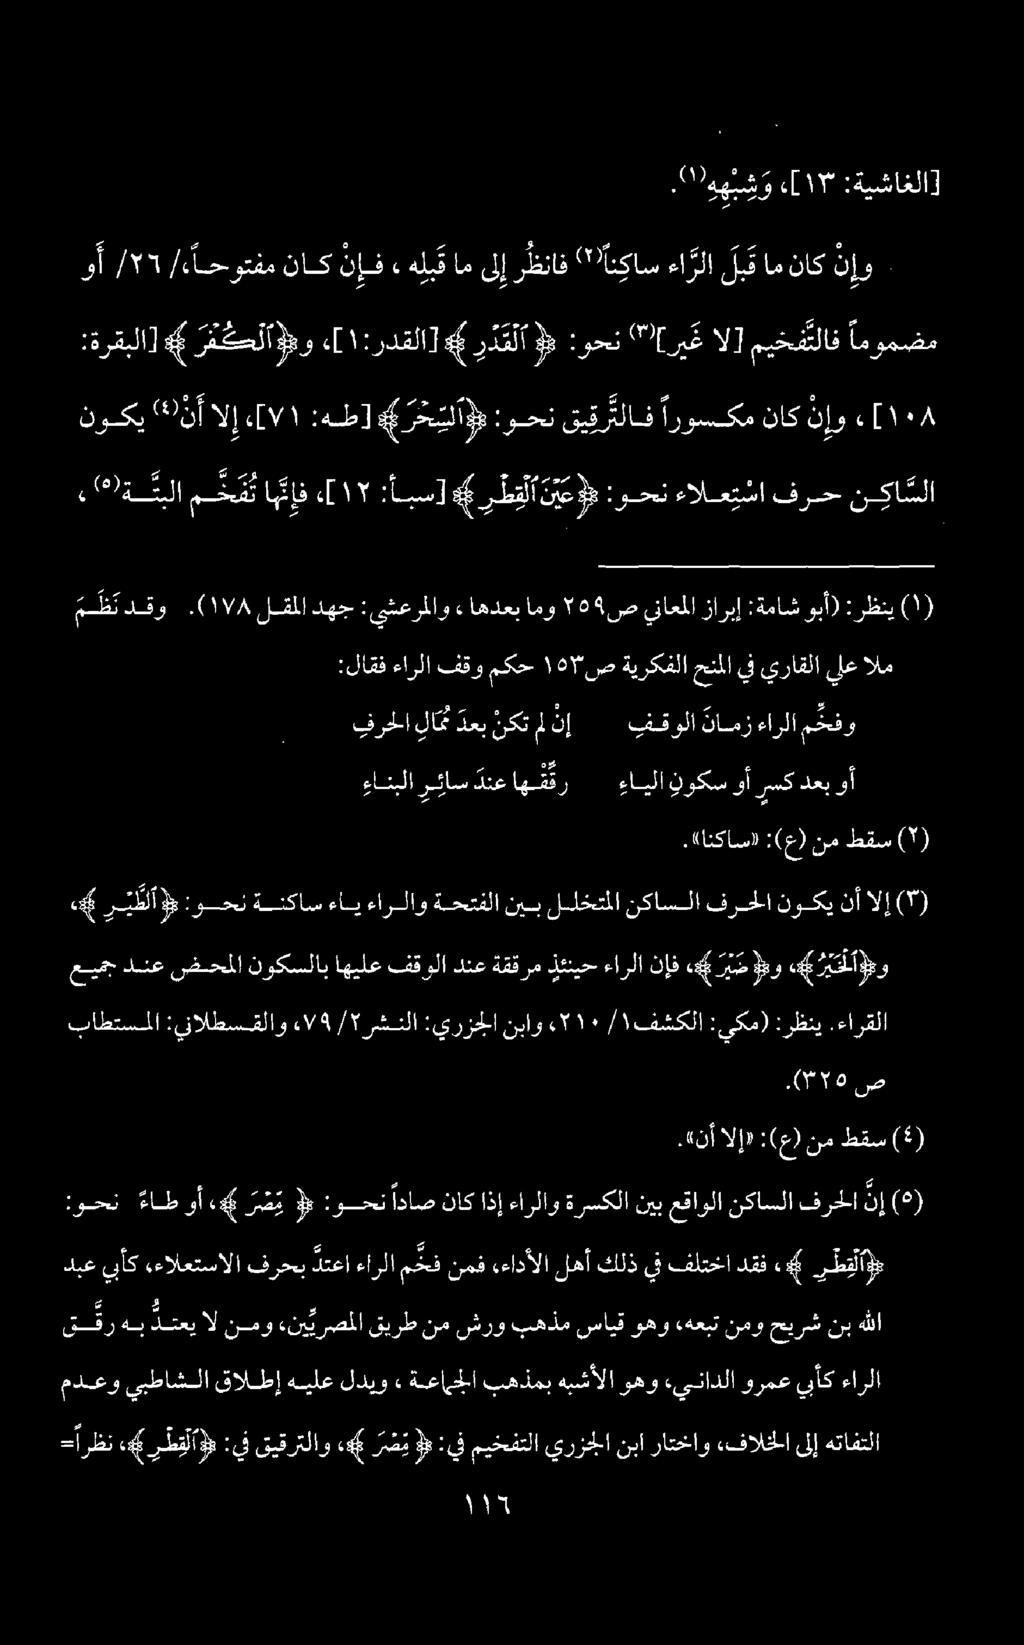 [الغاشية: ١٣]، وَشِبْهِهِ(١).
وإنْ كان ما قَبلَ الرَّاء ساكِناً(٢) فانظُر إلى ما قبله، فــإنْ كــان مفتوحــاً،/ ٢٦/ أَو
مضموماً فالتَّفخيم [لا غَير](٣) نحو: ﴿ ٱلْقَدْرِ ﴾ [القدر: ١]، و﴿ٱلْكُفْرَ ﴾ [البقرة:
١٠٨]، وإنْ كان مكسوراً فـالتَّرقِيق نحـو: ﴿ٱلسِّحْرَ﴾ [طـه: ٧١]، إلا أَنْ(٤) يكـون
السَّاكِـن حـرف اسْتِعـلاء نحـو: ﴿عَيْنَ ٱلْقِطْرِ ﴾ [سبـأ: ١٢]، فإنَّها تُفَخَّـم البتَّـة(٥)،
(١) ينظر: (أبو شامة: إبراز المعاني ص٢٥٩ وما بعدها، والمرعشي: جهد المقـل ١٧٨). وقـد نَظَـمَ
ملا علي القاري في المنح الفكرية ص١٥٣ حكم وقف الراء فقال:
وفخِّم الراء زمـانَ الوقـفِ إنْ لم تكنْ بعدَ مُمَالِ الحرفِ
أو بعد كسرٍ أو سكونِ اليـاءِ رقِّقْـها عندَ سائـرِ البنـاءِ
(٢) سقط من (ع): «ساكنا».
(٣) إلا أن يكـون الحـرف السـاكن المتخلـل بـين الفتحـة والـراء يـاء ساكنـة نحـو: ﴿ٱلطَّيْرِ ﴾،
و﴿ٱلْخَيْرُ﴾، و﴿ضَيْرَ ﴾، فإن الراء حينئذٍ مرققة عند الوقف عليها بالسكون المحـض عنـد جميـع
القراء. ينظر: (مكي: الكشف١/ ٢١٠، وابن الجزري: النـشر٢/ ٧٩، والقـسطلاني: المـستطاب
ص ٣٢٥).
(٤) سقط من (ع): «إلا أن».
(٥) إنَّ الحرف الساكن الواقع بين الكسرة والراء إذا كان صاداً نحـو: ﴿ مِّصْرَ ﴾، أو طـاءً نحـو:
﴿ٱلْقِطْرِ ﴾، فقد اختلف في ذلك أهل الأداء، فمن فخَّم الراء اعتدَّ بحرف الاستعلاء، كأبي عبد
الله بن شريح ومن تبعه، وهو قياس مذهب ورش من طريق المصريِّين، ومـن لا يعتـدُّ بـه رقَّـق
الراء كأبي عمرو الدانـي، وهو الأشبه بمذهب الجماعـة، ويدل عليـه إطـلاق الـشاطبي وعـدم
التفاته إلى الخلاف، واختار ابن الجزري التفخيم في: ﴿ مِّصْرَ ﴾، والترقيق في: ﴿ٱلْقِطْرِ﴾، نظراً=
١١٦